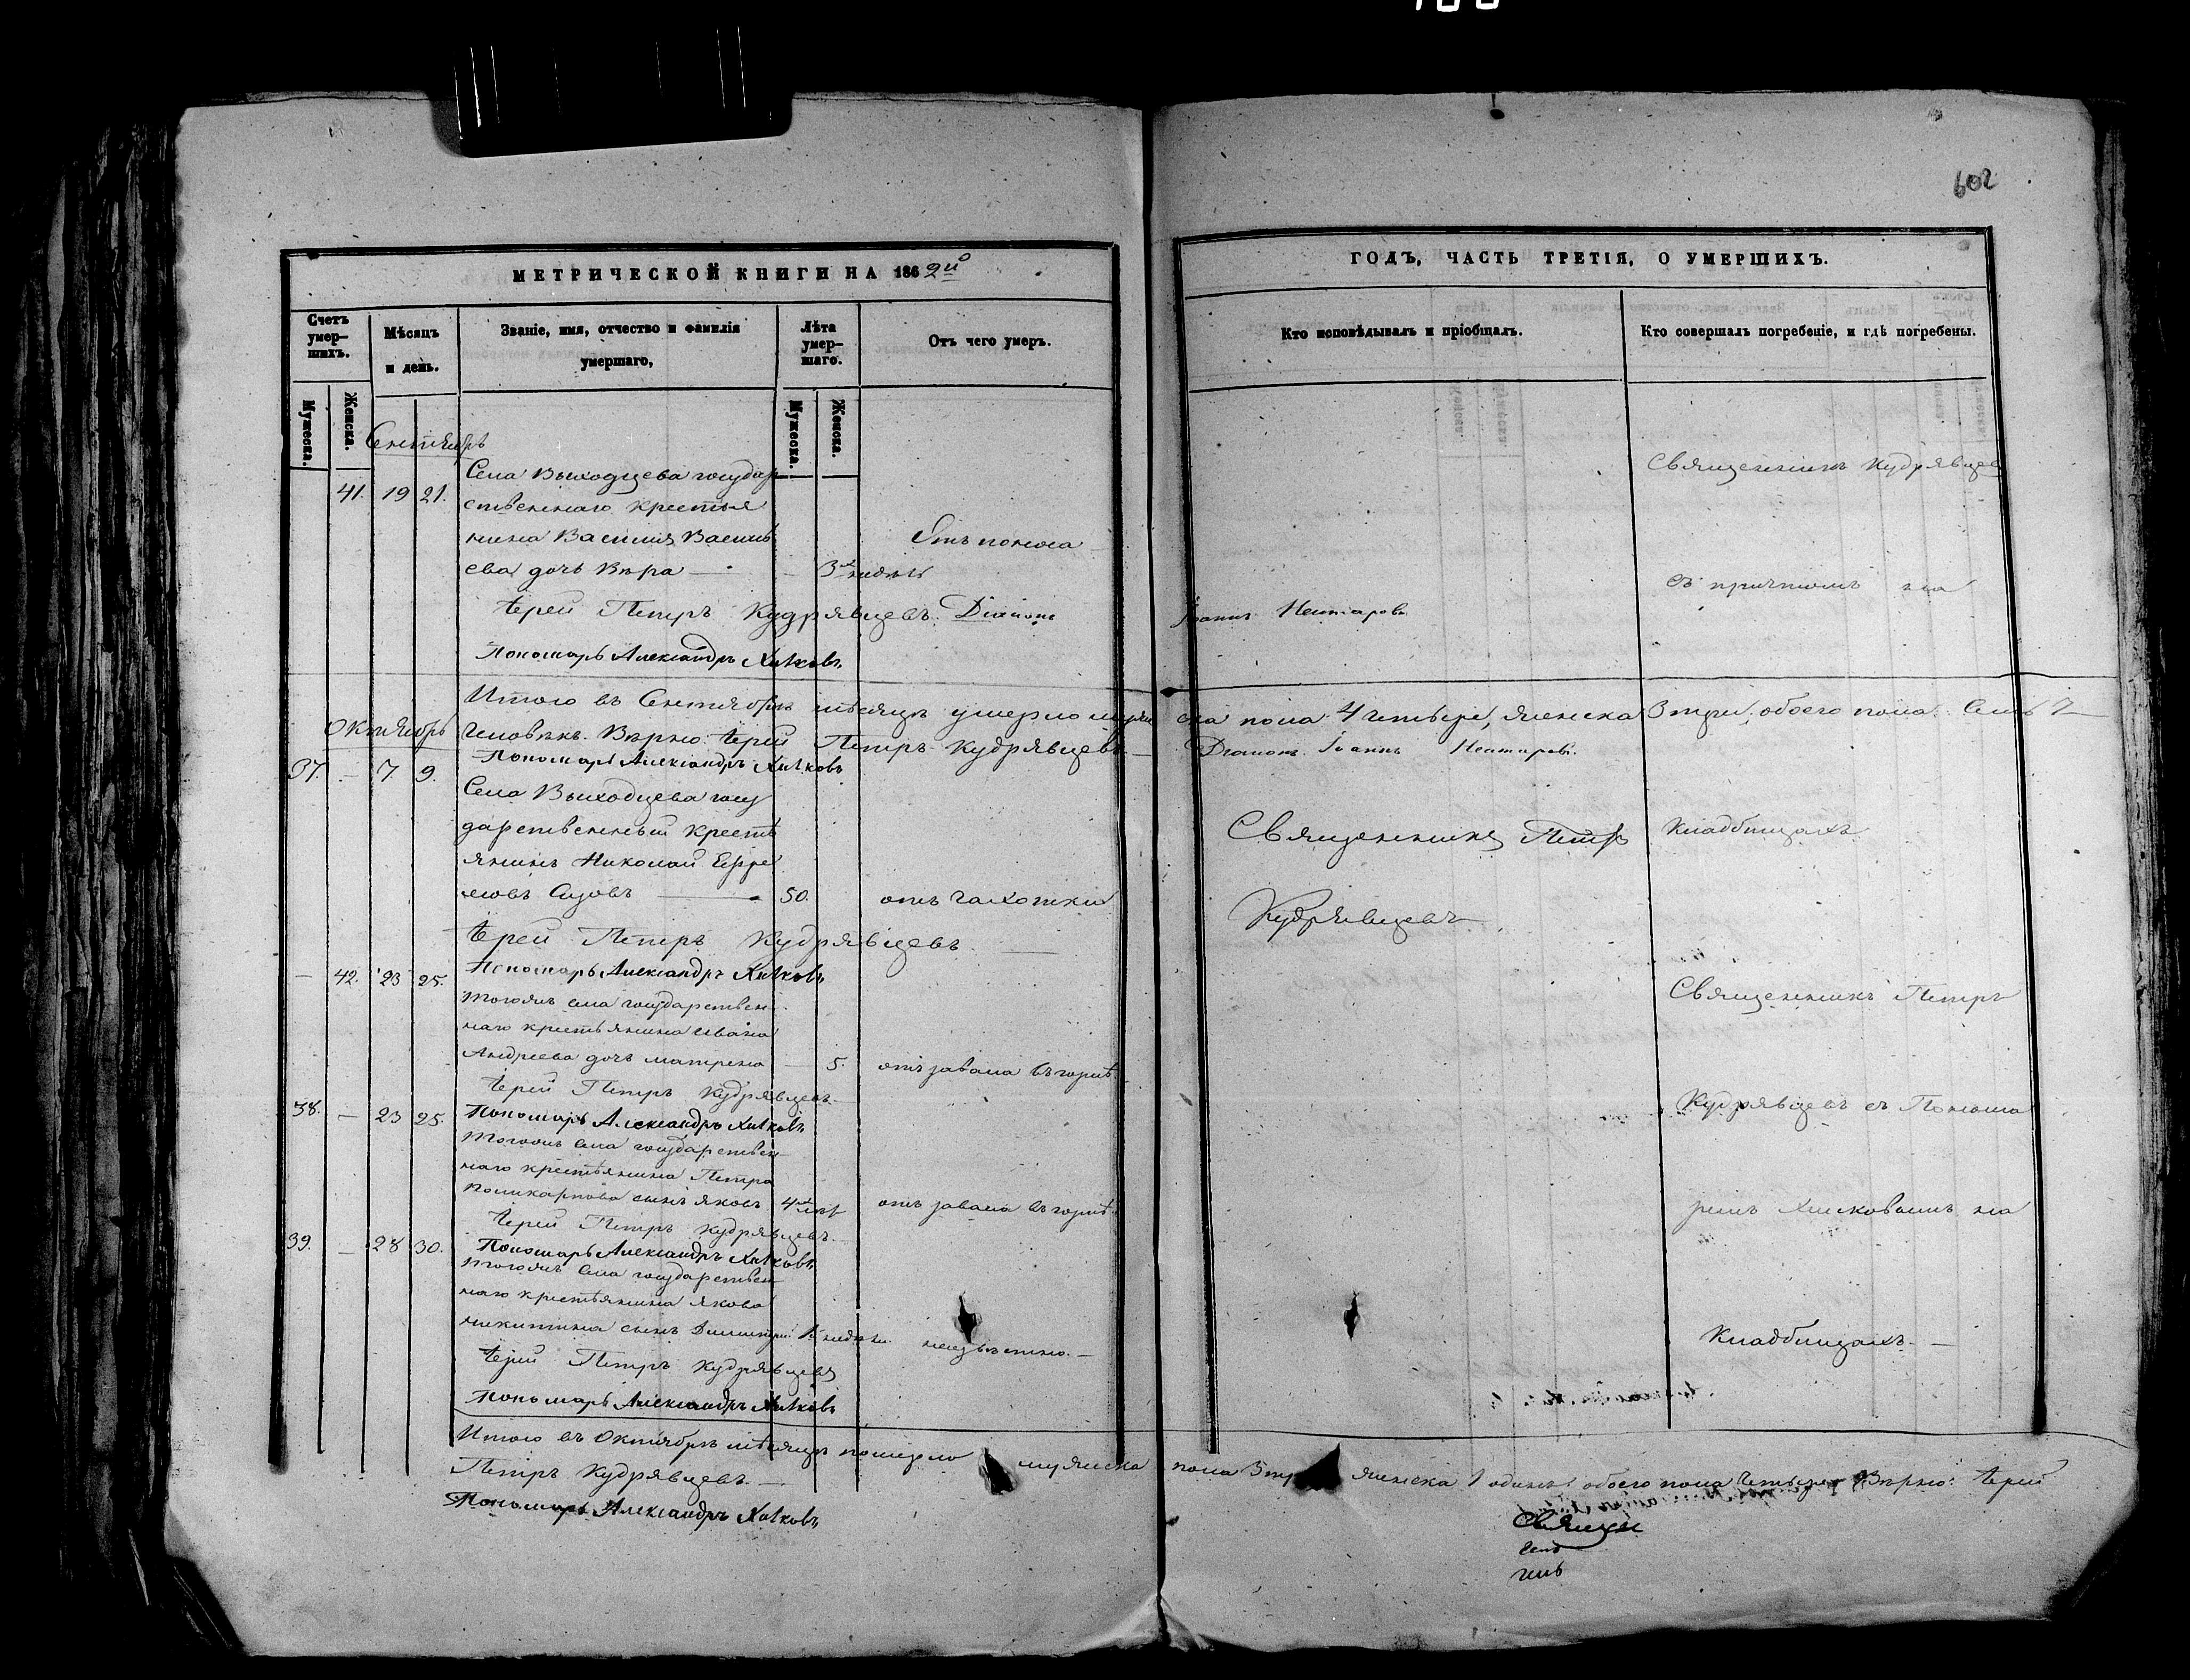 602
МЕТРИЧЕСКОЙ КНИГИ НА 1862й
ГОДЪ, ЧАСТЬ ТРЕТІЯ, О УМЕРШИХЪ.
Счетъ умер-шихъ.
Мѣсяцъ и день.
Званіе, имя, отчество и фамилія умершаго,
Лѣта умер-шаго.
Отъ чего умеръ.
Кто исповѣдывалъ и пріобщалъ.
Кто совершалъ погребеніе, и гдѣ погребены.
Мужеска.
Женска.
Мужеска.
Женска.
Сентябрь
41. 19 21.
Села Выходцева государ
ственнаго крестья
нина Василія Василь
ева дочь Вѣра
3 недѣль
Отъ поноса
Священникъ Кудрявцев
съ причтомъ на
Іерей Петръ Кудрявцевъ. Діаконъ
Іоаннъ Нектаровъ.
Пономарь Александръ
Итого въ Сентябрѣ мѣсяцѣ умерло муже ска пола 4 четыре, женска 3 три, обоего пола. Семь 7
Человѣкъ. Вѣрно: Іерей Петръ Кудрявцевъ
Діаконъ Іоаннъ Нектаровъ.
Пономарь Александръ
Октябрь
37. — 7 9.
Села Выходцева госу
дарственный кресть
янинъ Николай Ефре
мовъ Сизовъ
50.
отъ чахотки
Священникъ Петръ
Кудрявцевъ
Кладбищахъ.
Іерей Петръ Кудрявцевъ
Пономарь Александръ
— 42. 23 25.
Тогожъ села государствен
наго крестьянина Ивана
Андреева дочь Матрена
5.
отъ завала въ горлѣ.
Іерей Петръ Кудрявцевъ.
Пономарь Александръ
Священникъ Петръ
Кудрявцевъ съ Понома
38. — 23 25.
Тогожъ села государствен
наго крестьянина Петра
Поликарпова сынъ Яковъ
4 лѣт
отъ завала въ горлѣ.
Іерей Петръ Кудрявцевъ.
Пономарь Александръ
ремъ на
39. — 28 30.
Тогожъ села государствен
наго крестьянина Якова
Никитина сынъ Димитрій
недѣли
неизвѣстно.
Іерей Петръ Кудрявцевъ
Пономарь Александръ
Кладбищахъ.
Итого въ Октябрѣ мѣсяцѣ померло мужеска пола 3 женска 1 одинъ обоего пола Четыре Вѣрно: Іерей
Петръ Кудрявцевъ.
Пономарь Александръ